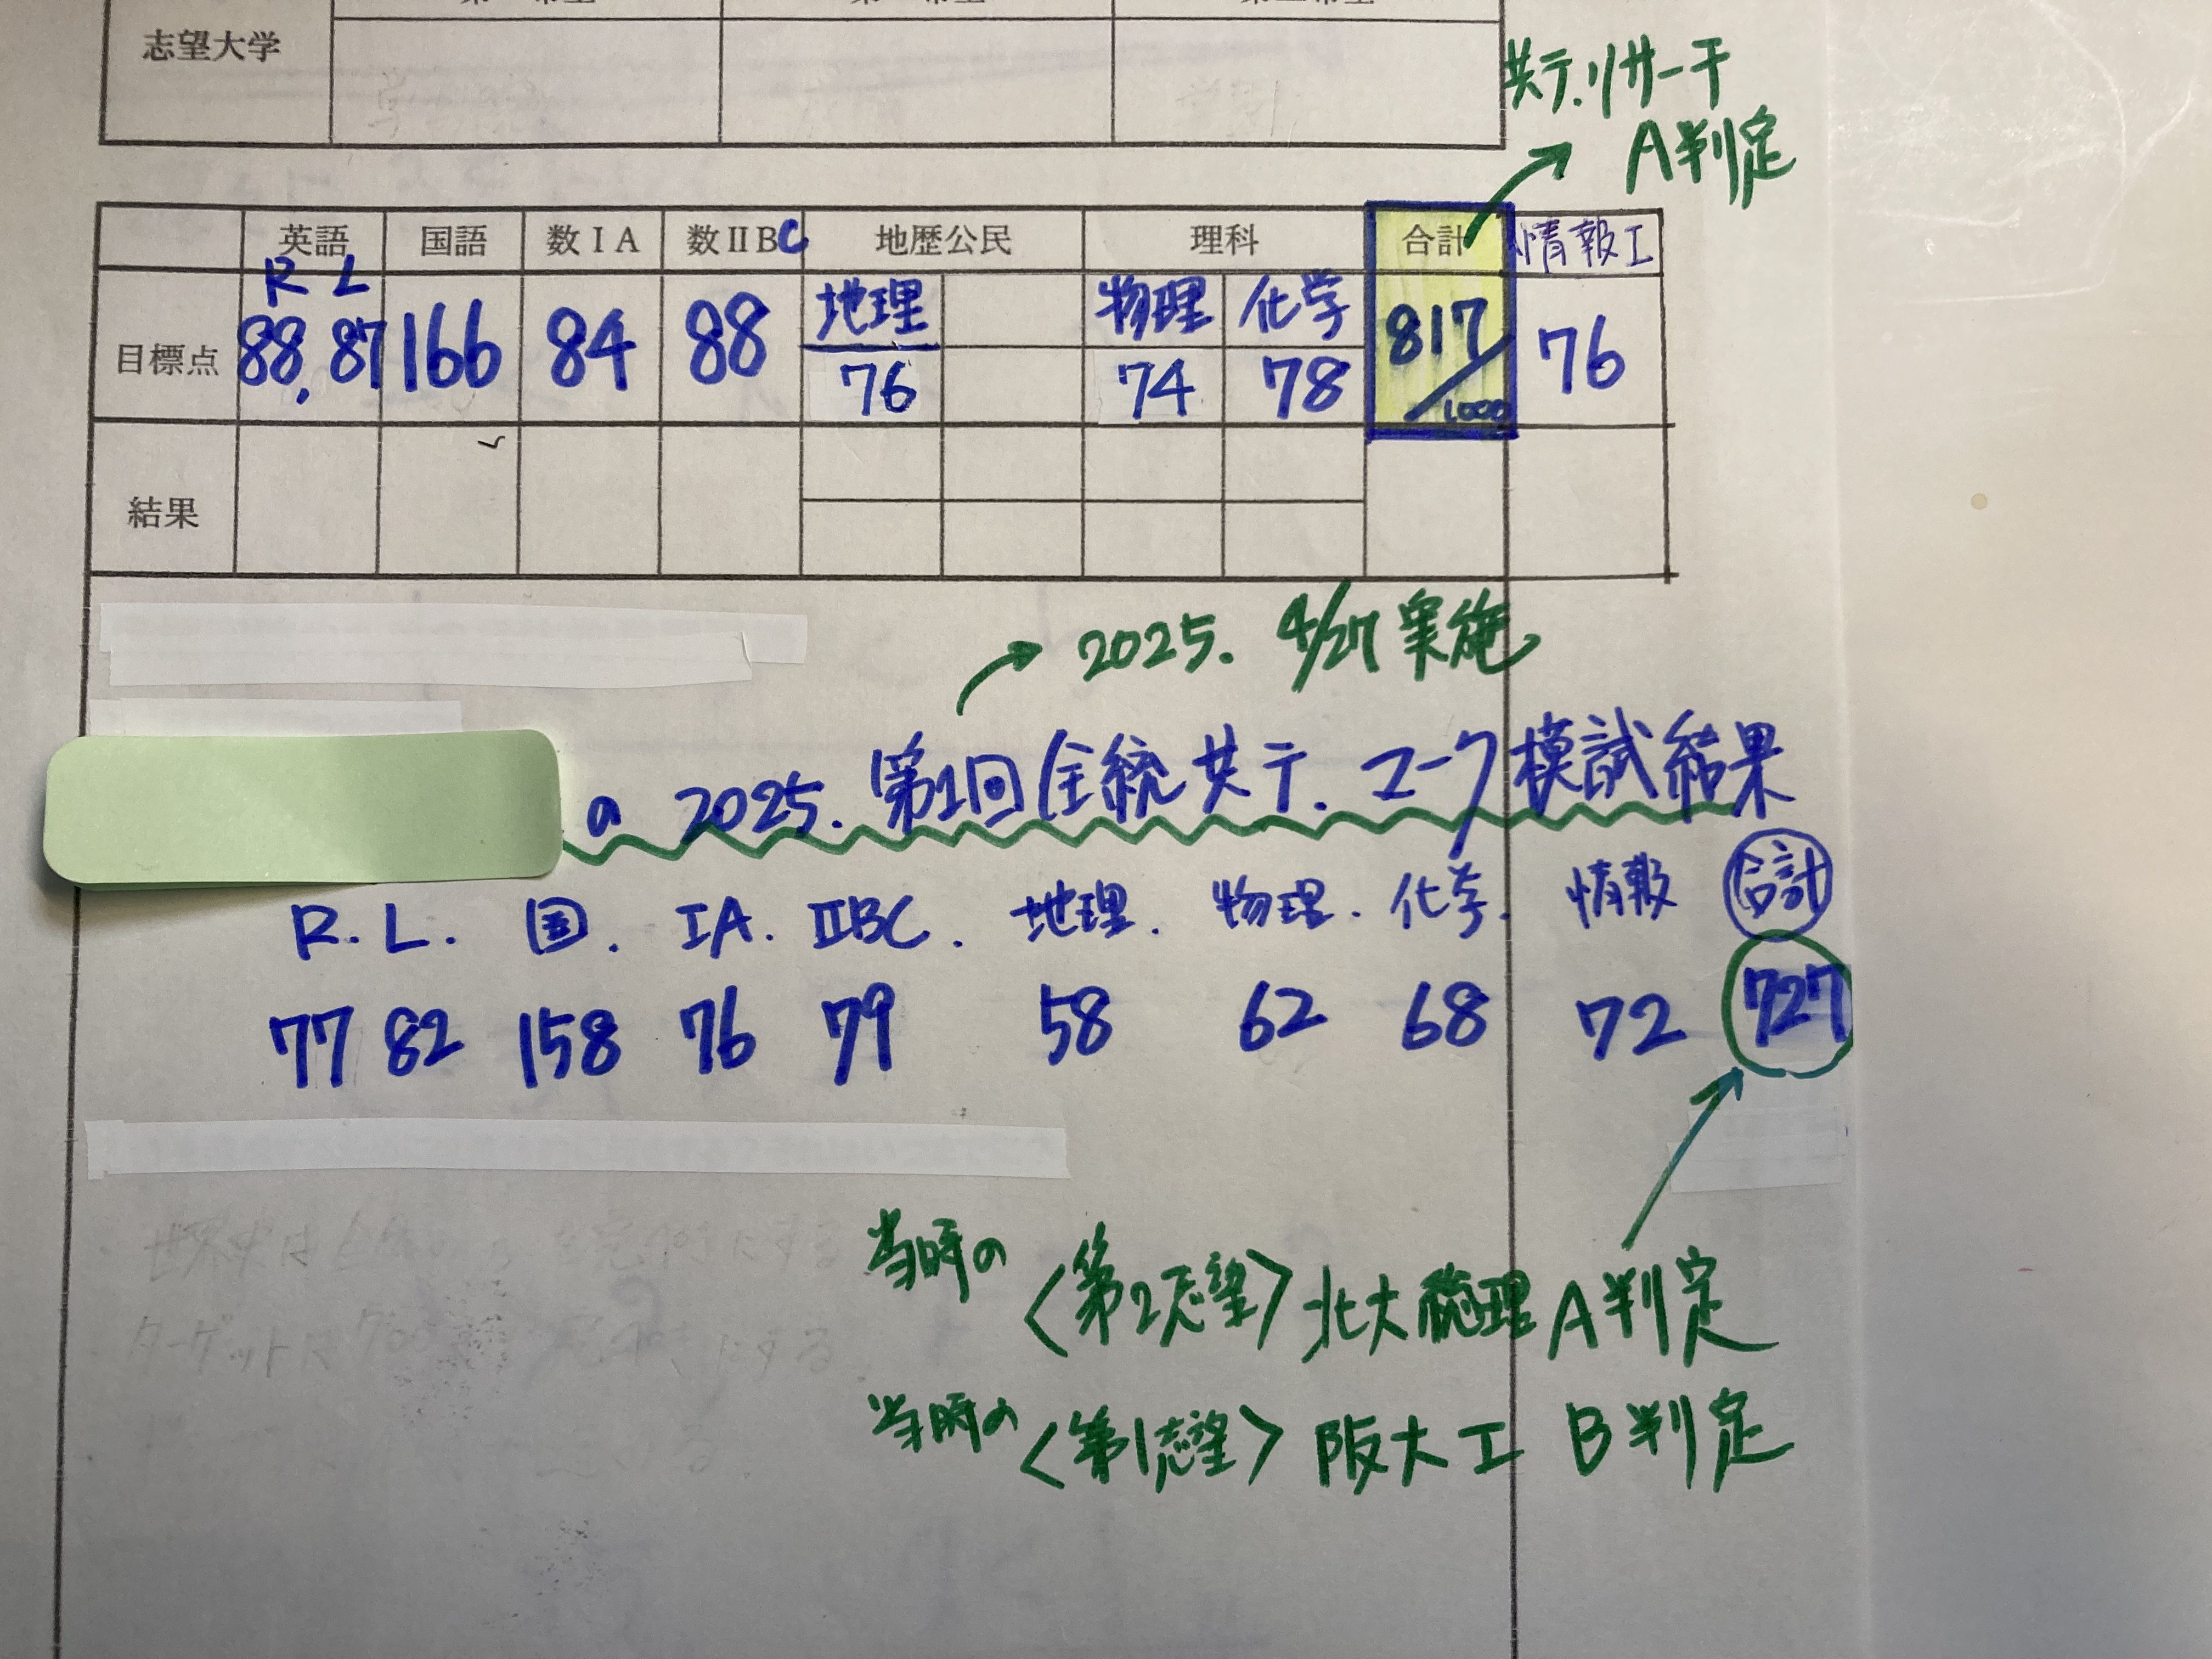 志望大学
共テ.リサーチ
A判定
英語 国語 数ⅠA 数ⅡBC 地歴公民 理科 合計 情報I
R L 地理 物理 化学
目標点 88, 87 166 84 88 76 74 78 817/1000 76
結果
2025. 4/27 実施
の 2025. 第1回全統共テ. マーク模試結果
R. L. 国. IA. ⅡBC. 地理. 物理. 化学. 情報 合計
77 82 158 76 79 58 62 68 72 727
当時の〈第2志望〉北大総理 A判定
当時の〈第1志望〉阪大工 B判定
世界史は
ターゲット